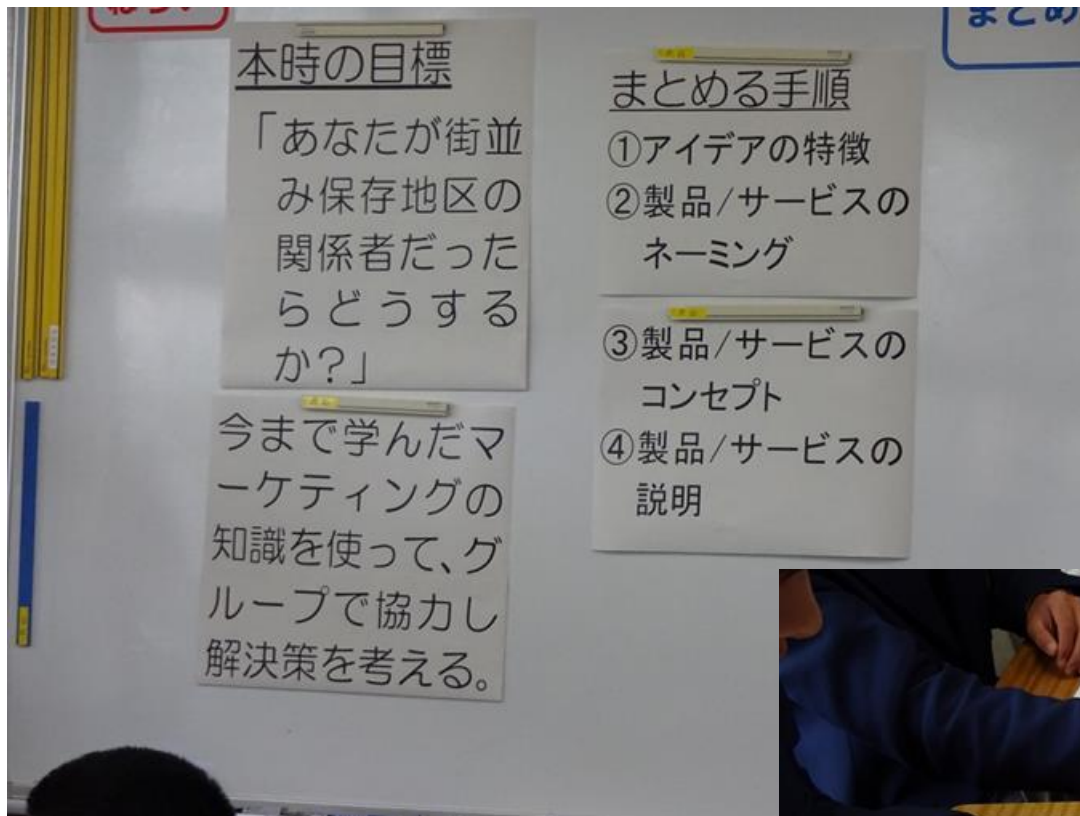 ねらい
本時の目標
「あなたが街並
み保存地区の
関係者だった
らどうする
か?」
今まで学んだマ
ーケティングの
知識を使って、グ
ループで協力し
解決策を考える。
まとめ
まとめる手順
①アイデアの特徴
②製品/サービスの
ネーミング
③製品/サービスの
コンセプト
④製品/サービスの
説明